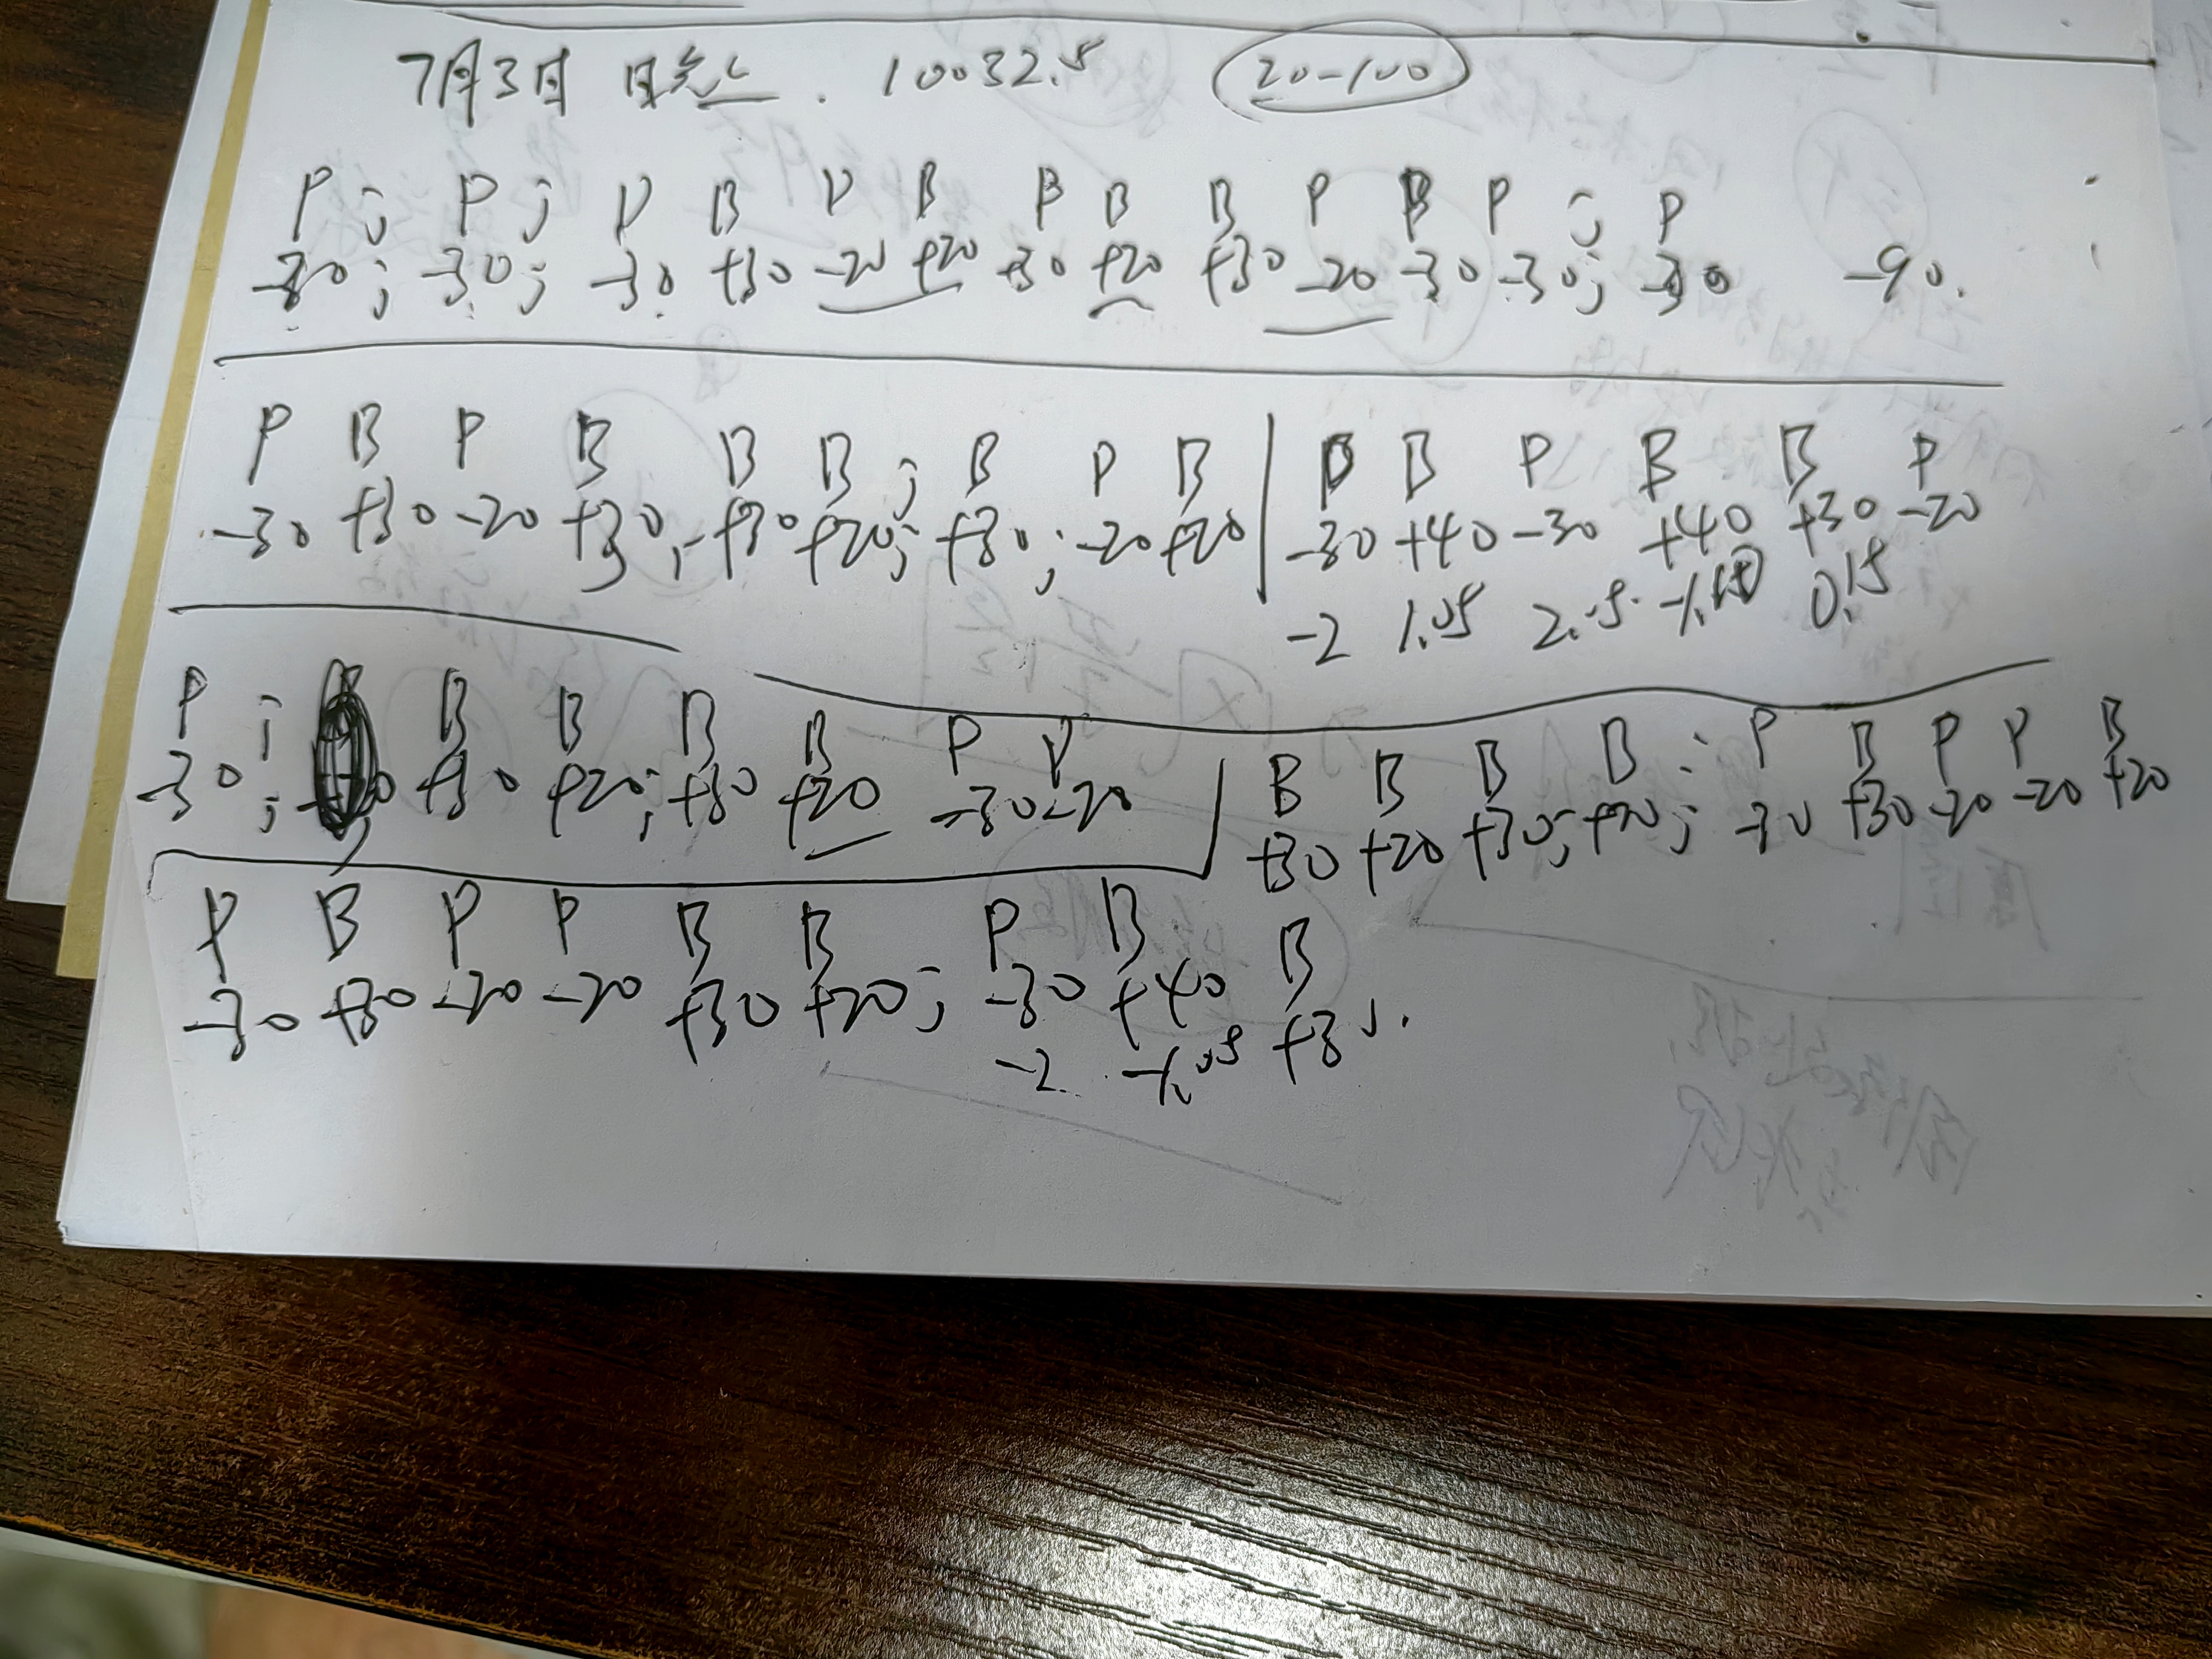 7月3日 10032.5 20-100
P ; P ; P B P B B B B P B P ; P
-30; -30; -30 +30 -20 +20 +30 +20 +30 -20 -30 -30; -30 -90.
P B P B B B ; B P B | B P B B P
-30 +30 -20 +30, +30 +20; +30; -20 +20 | -30 +40 -30 +40 +30 -20
-2 1.05 2.05 0.15
P ; B B B B P P
-30; +30 +20; +30 +20 -30 -20
B B B B ; P B P P B
+30 +20 +30; +20; -30 +30 -20 -20 +20
P B P P B B P B B
-30 +30 -20 -20 +30 +20; -30 +40 +30.
-2